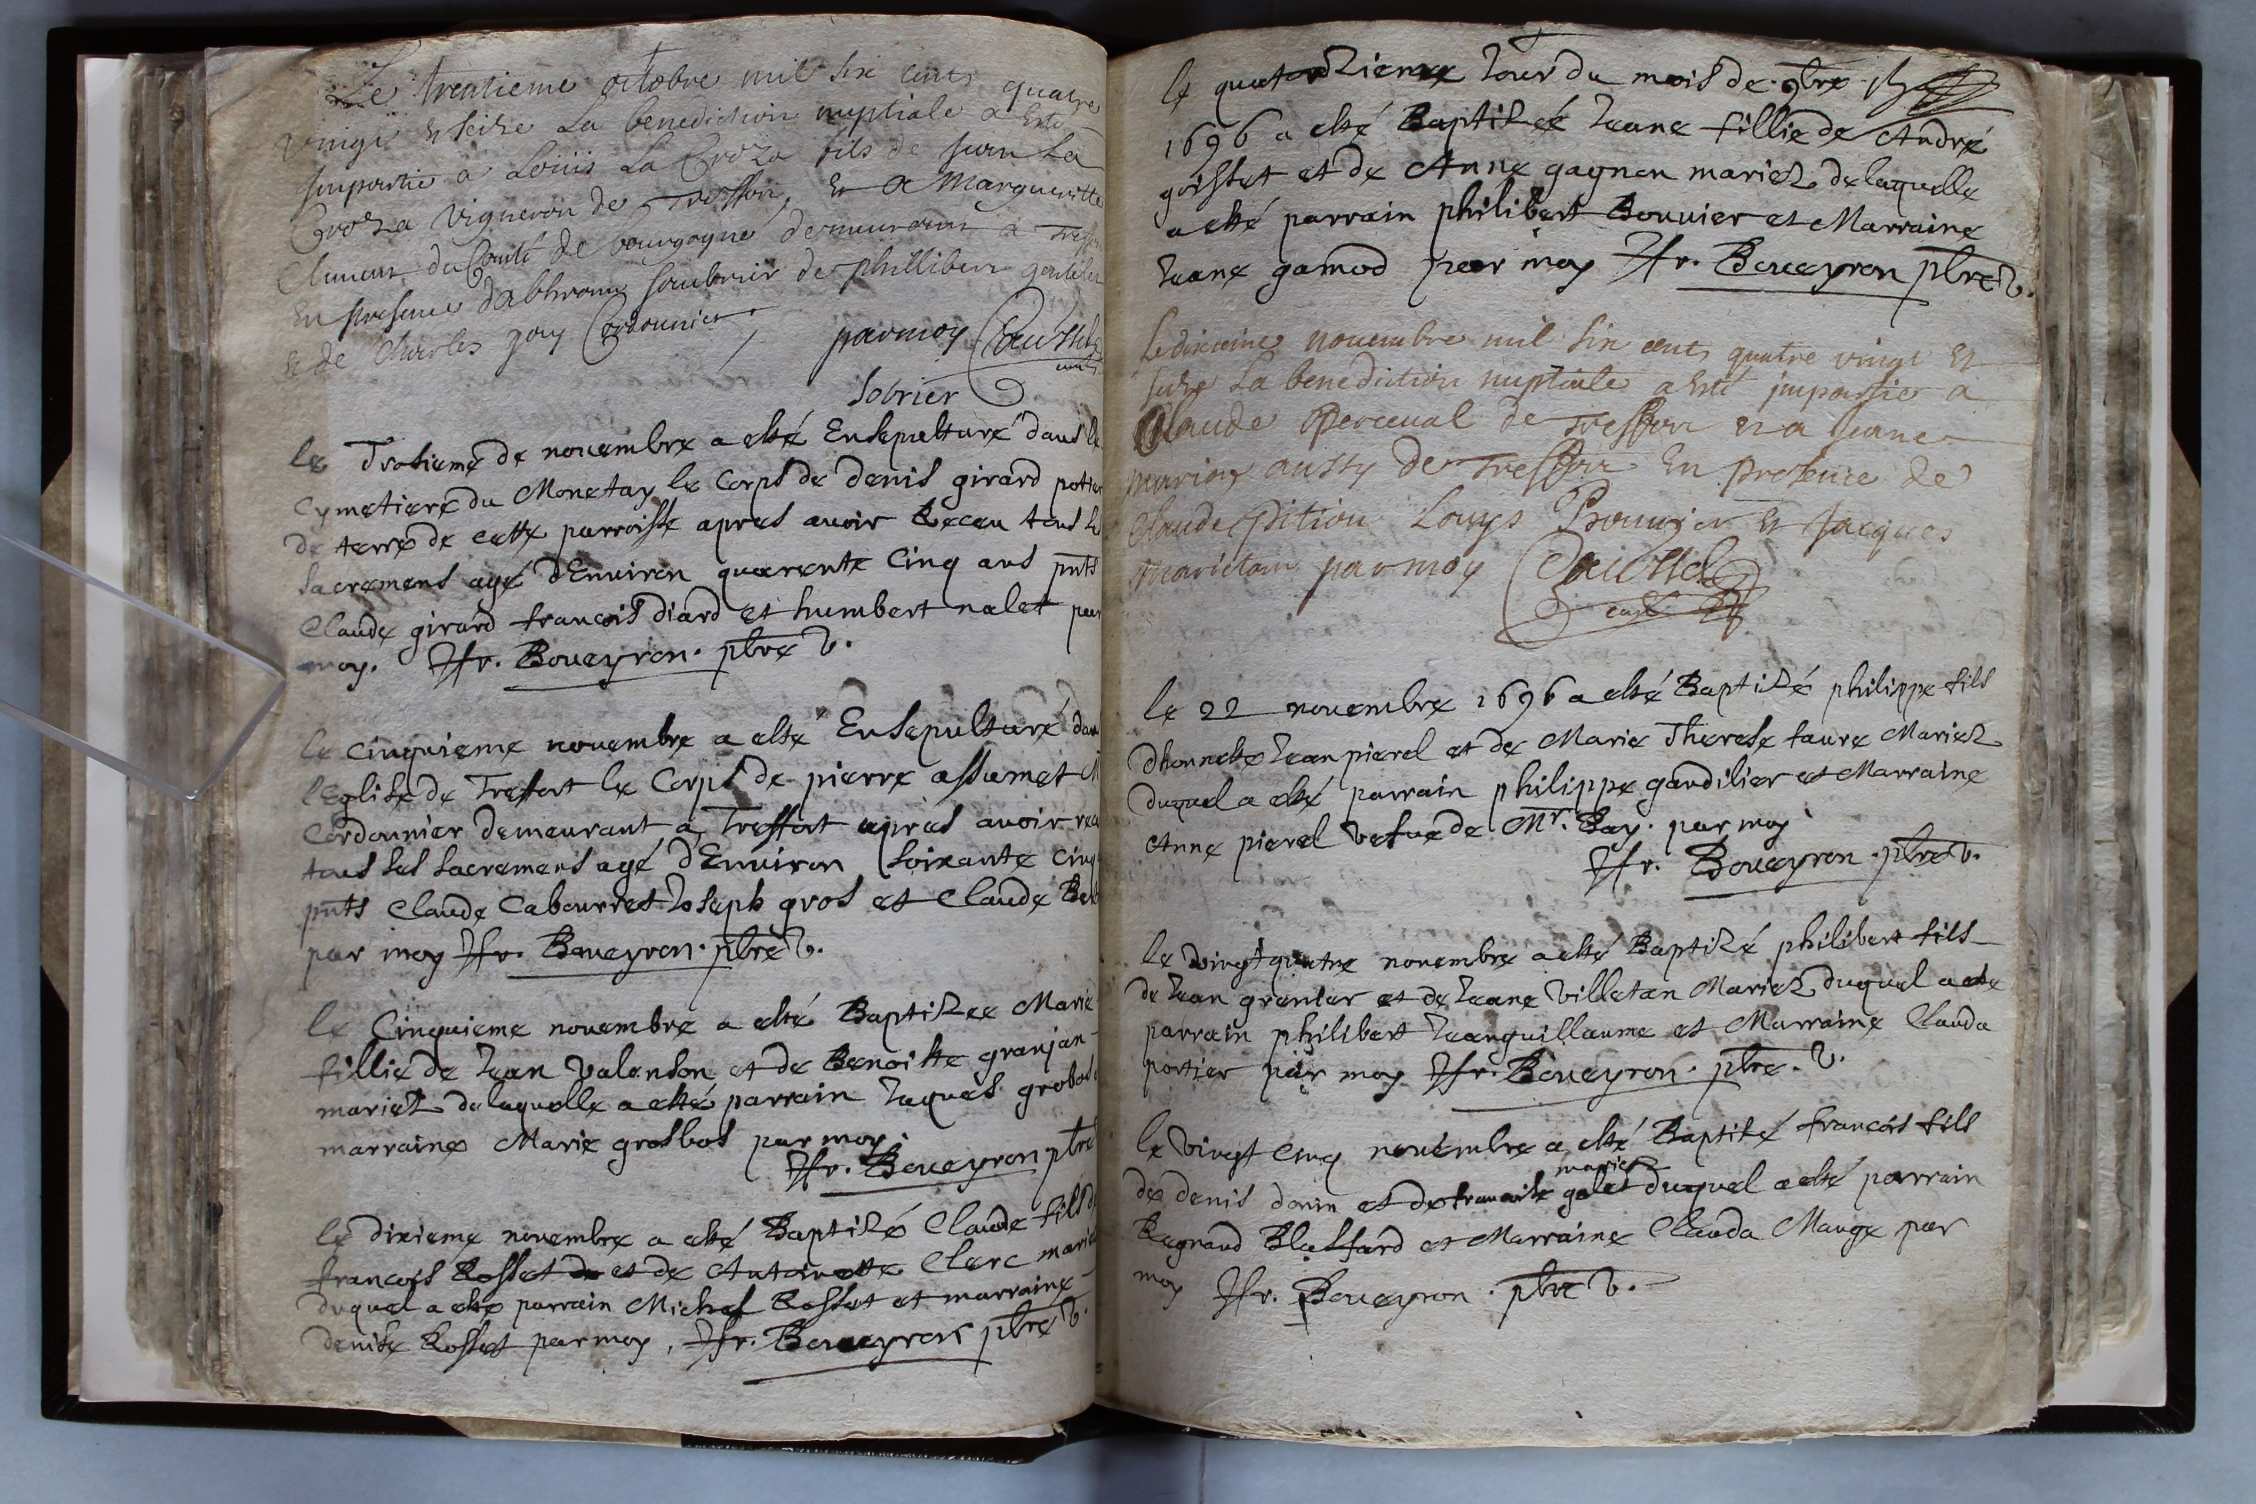 Le trentieme octobre mil six cents quatre
vingt et seize La benediction nuptiale a Esté
Impartie a Loüis La Croza fils de Jean La
Croza vigneron de Treffort, Et a Margueritte
du Comté de bourgogne demeurant a Treff
En presence dabhram de phillibert
et de Charles joly Cordonnier. parmoy
Sobrier
le Troisieme de novembre a esté Ensepulturé dans le
Cymetiere du Monetay le Corps de denis girard potier
de terre de cette parroisse apres avoir Receu tous les
sacremens agé d'Environ quarente Cinq ans pnts
Claude girard francois diard et humbert nalet par
moy. Boveyron. pbre v.
le cinquieme novembre a esté Ensepulturé dan
l'Eglise de Treffort le Corps de pierre assumet M
Cordonnier demeurant a Treffort apres avoir reeu
tous ses sacremens agé d'Environ soixante cinq
pnts Claude Cabourret Joseph gros et Claude
par moy Boveyron. pbre v.
le Cinquieme novembre a esté Baptizée Marie
fillie de Jean valenson et de Benoitte granjan
mariez de laquelle a esté parrain Jaques grobos
marraine Marie grosbos par moy.
Boveyron pbre
le dixieme novembre a esté Baptizé Claude fils de
francois Rosset et de Antoinette Clerc mariez
duquel a esté parrain Michel Rosset et marraine
denise Rosset par moy, Boveyron pbre v.
le quatorzieme Jour du mois de 9bre
1696 a esté Baptizée Jeane fillie de André
goisset et de Anne gagnon mariez de laquelle
a esté parrain philibert Bouvier et Marraine
Jeane gamod par moy Boveyron pbre v.
Le dixieme novembre mil six cents quatre vingt et
seize La benediction nuptiale a Esté impartie a
Claude Perceval de Treffort et a Jeane
marion aussy de Treffort En presence de
Claude Pition Louys Bouvier et Jacques
parmoy
curé
le 22 novembre 1696 a esté Baptizé philippe fils
dhonneste Jean pierel et de Marie Therese faure Mariez
duquel a esté parrain philippe gaudilier et Marraine
Anne pierel vefue de Mr. Bay. par moy
Boveyron. pbre v.
le vingt quatre novembre a esté Baptizé philibert fils
de Jean granier et de Jeane Villetan Mariez duquel a esté
parrain philibert Jeanguillaume et Marraine Clauda
portier par moy Boveyron. pbre. v.
le vingt cinq novembre a esté Baptisé francois fils
mariez
de denis donin et de francoise galet duquel a esté parrain
Blaffard et Marraine Clauda Mange par
moy Boveyron. pbre v.